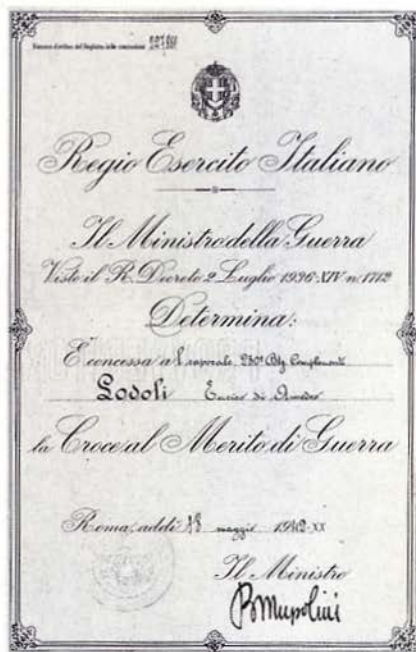 Numero d'ordine del Registro delle concessioni
Regio Esercito Italiano
Il Ministro della Guerra
Visto il R. Decreto 2 Luglio 1936-XIV n. 1712
Determina:
È concessa al caporale 280° Btg Complementi
Lodoli di
la Croce al Merito di Guerra
Roma, addì 18 maggio 1942-XX
Il Ministro
BMussolini